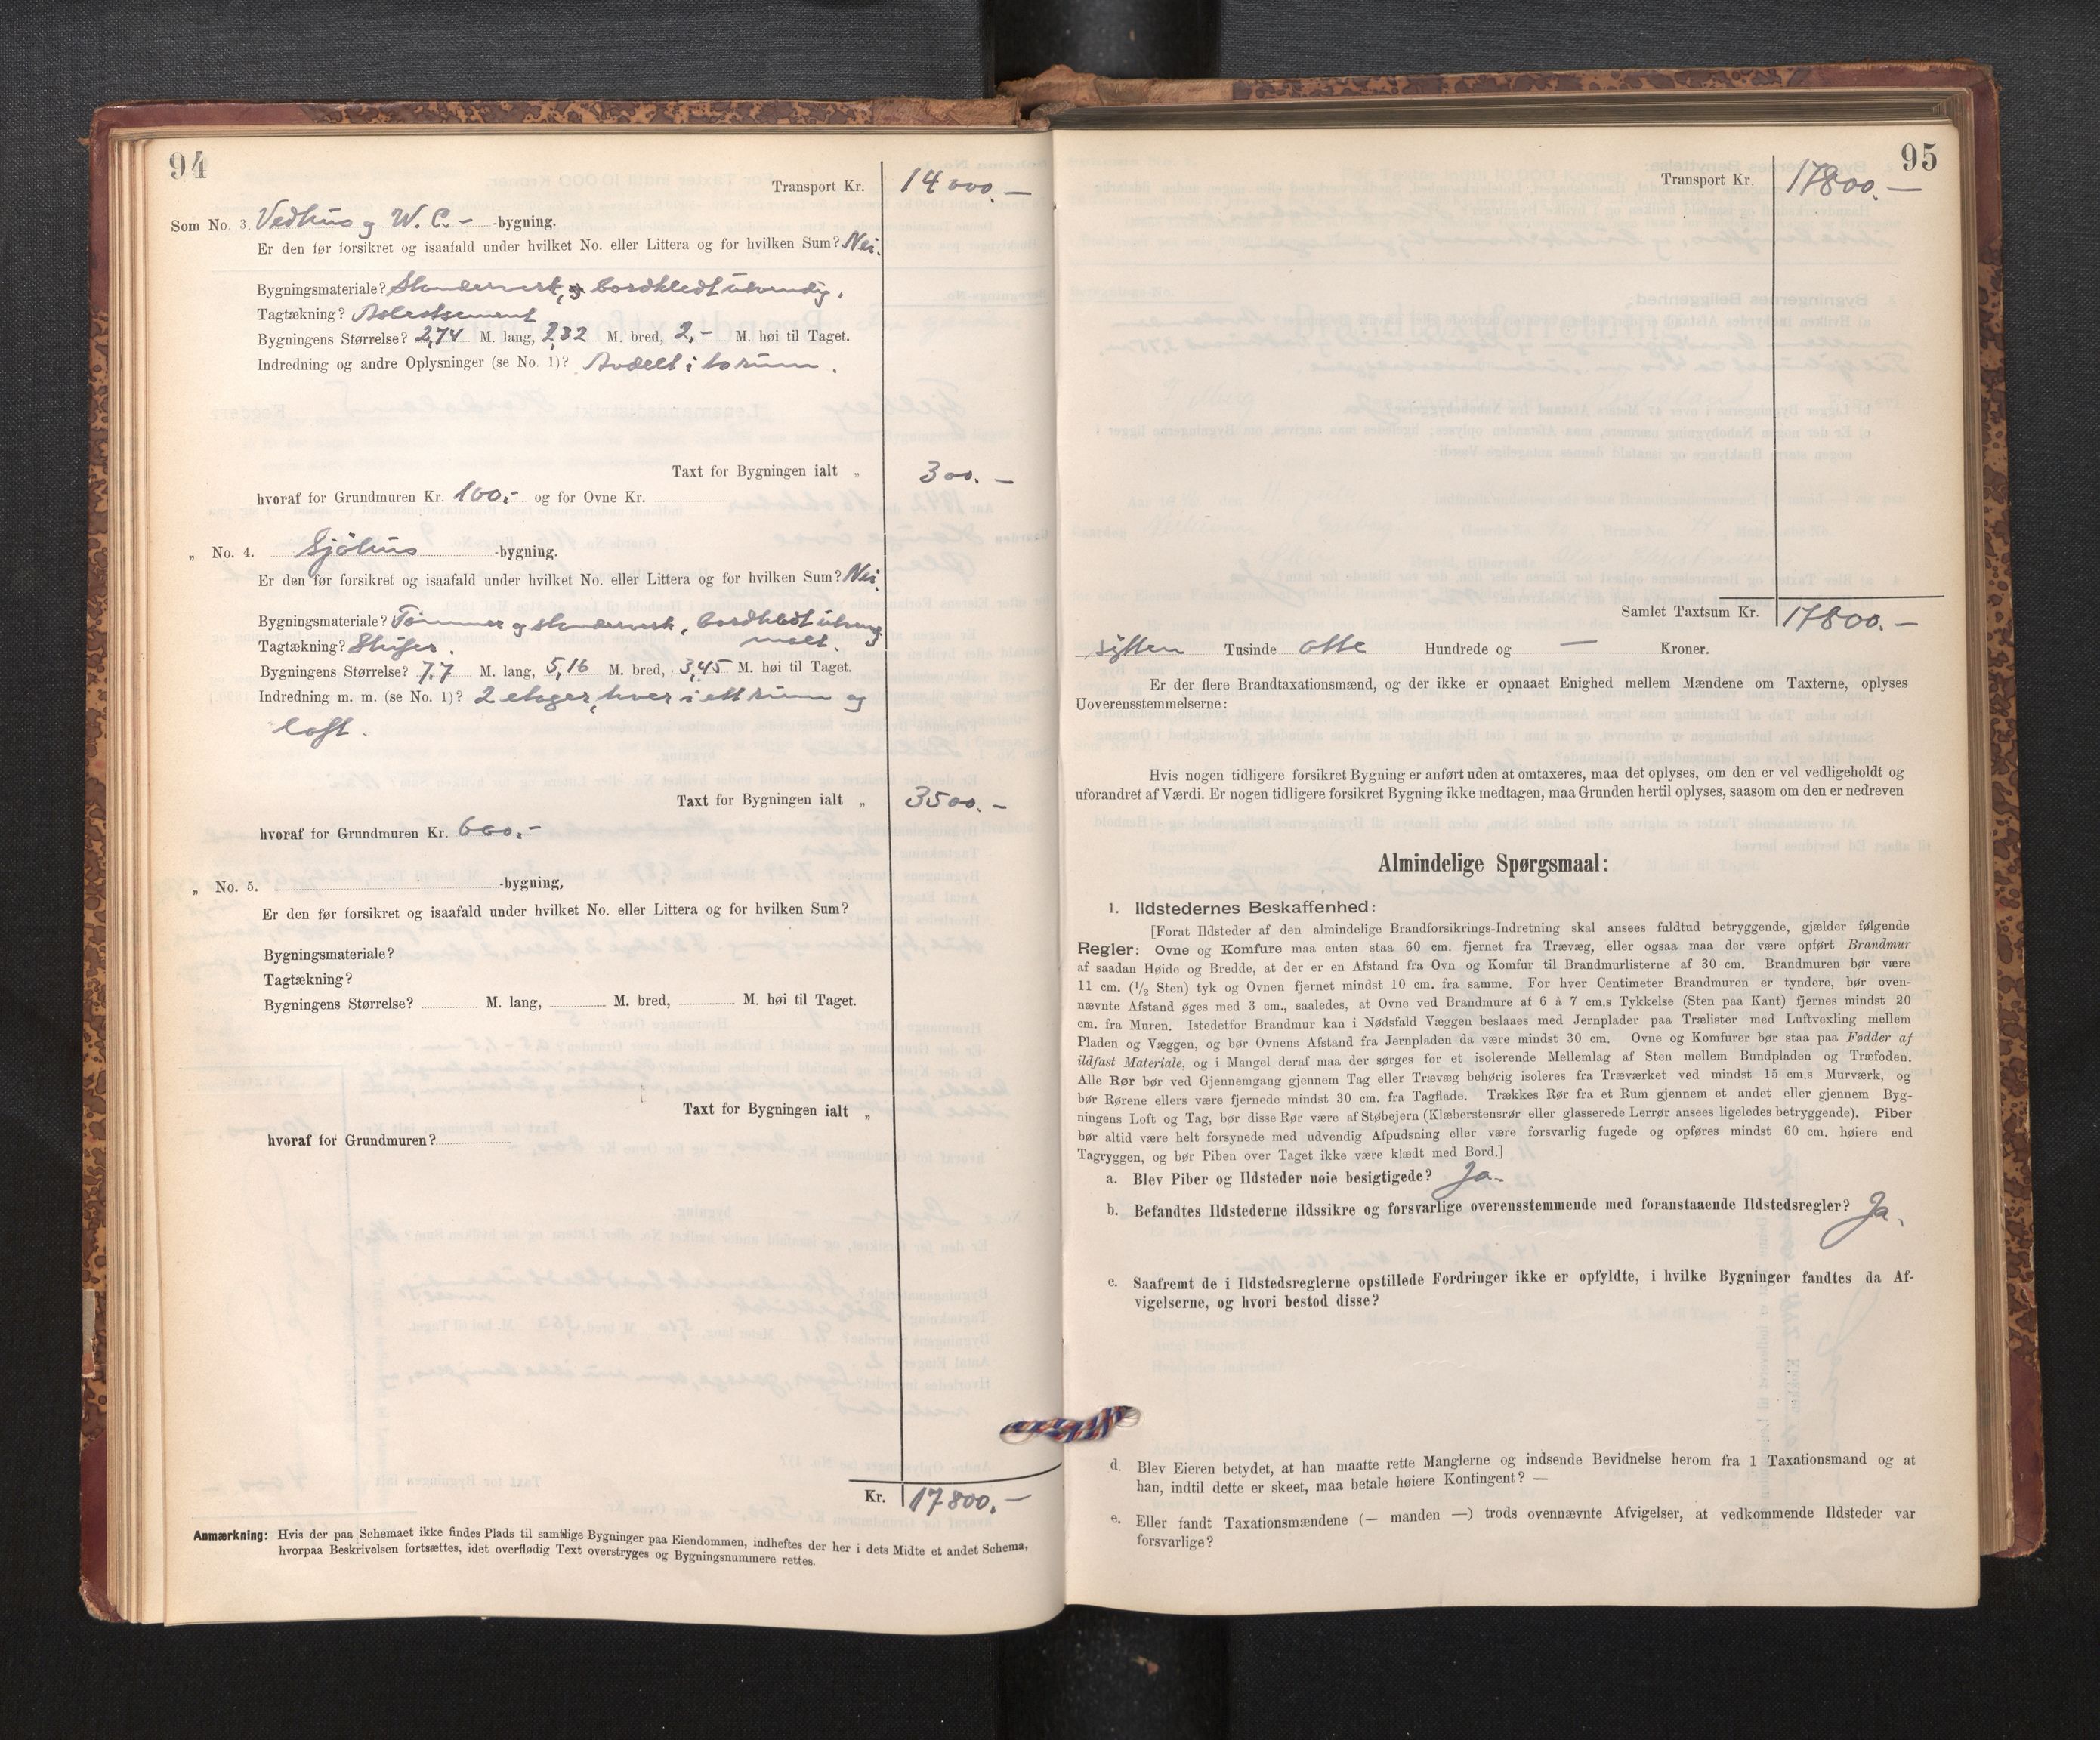 94
Transport Kr. 14000.—
Som No. 3. Vedhus og W. C. – -bygning.
Er den før forsikret og isaafald under hvilket No. eller Littera og for hvilken Sum? Nei.
Bygningsmateriale? Standerverk, bordkledt utvendig.
Tagtækning? Asbestsement
Bygningens Størrelse? 2,74 M. lang, 2,32 M. bred, 2,- M. høi til Taget.
Indredning og andre Oplysninger (se No. 1)? Avdelt i to rum.
Taxt for Bygningen ialt „ 300.—
hvoraf for Grundmuren Kr. 100.- og for Ovne Kr.
„ No. 4. Sjöhus -bygning.
Er den før forsikret og isaafald under hvilket No. eller Littera og for hvilken Sum? Nei
Bygningsmateriale? Tømmer og standerverk, bordkledt utveng
malt.
Tagtækning? Skifer.
Bygningens Størrelse? 7,7 M. lang, 5,16 M. bred, 3,45 M. høi til Taget.
Indredning m. m. (se No. 1)? 2 etager, hver i ett rum og
loft.
Taxt for Bygningen ialt „ 3500.—
hvoraf for Grundmuren Kr. 600.-
„ No. 5. -bygning,
Er den før forsikret og isaafald under hvilket No. eller Littera og for hvilken Sum?
Bygningsmateriale?
Tagtækning?
Bygningens Størrelse? M. lang, M. bred, M. høi til Taget.
Taxt for Bygningen ialt „
hvoraf for Grundmuren?
Kr. 17800.—
Anmærkning: Hvis der paa Schemaet ikke findes Plads til samtlige Bygninger paa Eiendommen, indheftes der her i dets Midte et andet Schema,
hvorpaa Beskrivelsen fortsættes, idet overflødig Text overstryges og Bygningsnummere rettes.
95
Transport Kr. 17800.—
Samlet Taxtsum Kr. 17800.—
sytten Tusinde otte Hundrede og — Kroner.
Er der flere Brandtaxationsmænd, og der ikke er opnaaet Enighed mellem Mændene om Taxterne, oplyses
Uoverensstemmelserne:
Hvis nogen tidligere forsikret Bygning er anført uden at omtaxeres, maa det oplyses, om den er vel vedligeholdt og
uforandret af Værdi. Er nogen tidligere forsikret Bygning ikke medtagen, maa Grunden hertil oplyses, saasom om den er nedreven
Almindelige Spørgsmaal:
1. Ildstedernes Beskaffenhed:
[Forat Ildsteder af den almindelige Brandforsikrings-Indretning skal ansees fuldtud betryggende, gjælder følgende
Regler: Ovne og Komfure maa enten staa 60 cm. fjernet fra Trævæg, eller ogsaa maa der være opført Brandmur
af saadan Høide og Bredde, at der er en Afstand fra Ovn og Komfur til Brandmurlisterne af 30 cm. Brandmuren bør være
11 cm. (1/2 Sten) tyk og Ovnen fjernet mindst 10 cm. fra samme. For hver Centimeter Brandmuren er tyndere, bør oven-
nævnte Afstand øges med 3 cm., saaledes, at Ovne ved Brandmure af 6 à 7 cm.s Tykkelse (Sten paa Kant) fjernes mindst 20
cm. fra Muren. Istedetfor Brandmur kan i Nødsfald Væggen beslaaes med Jernplader paa Trælister med Luftvexling mellem
Pladen og Væggen, og bør Ovnens Afstand fra Jernpladen da være mindst 30 cm. Ovne og Komfurer bør staa paa Fødder af
ildfast Materiale, og i Mangel deraf maa der sørges for et isolerende Mellemlag af Sten mellem Bundpladen og Træfoden.
Alle Rør bør ved Gjennemgang gjennem Tag eller Trævæg behørig isoleres fra Træværket ved mindst 15 cm.s Murværk, og
bør Rørene ellers være fjernede mindst 30 cm. fra Tagflade. Trækkes Rør fra et Rum gjennem et andet eller gjennem Byg-
ningens Loft og Tag, bør disse Rør være af Støbejern (Klæberstensrør eller glasserede Lerrør ansees ligeledes betryggende). Piber
bør altid være helt forsynede med udvendig Afpudsning eller være forsvarlig fugede og opføres mindst 60 cm. høiere end
Tagryggen, og bør Piben over Taget ikke være klædt med Bord.]
a. Blev Piber og Ildsteder nøie besigtigede? Ja.
b. Befandtes Ildstederne ildssikre og forsvarlige overensstemmende med foranstaaende Ildstedsregler? Ja.
c. Saafremt de i Ildstedsreglerne opstillede Fordringer ikke er opfyldte, i hvilke Bygninger fandtes da Af-
vigelserne, og hvori bestod disse?
d. Blev Eieren betydet, at han maatte rette Manglerne og indsende Bevidnelse herom fra 1 Taxationsmand og at
han, indtil dette er skeet, maa betale høiere Kontingent? —
e. Eller fandt Taxationsmændene (— manden —) trods ovennævnte Afvigelser, at vedkommende Ildsteder var
forsvarlige?